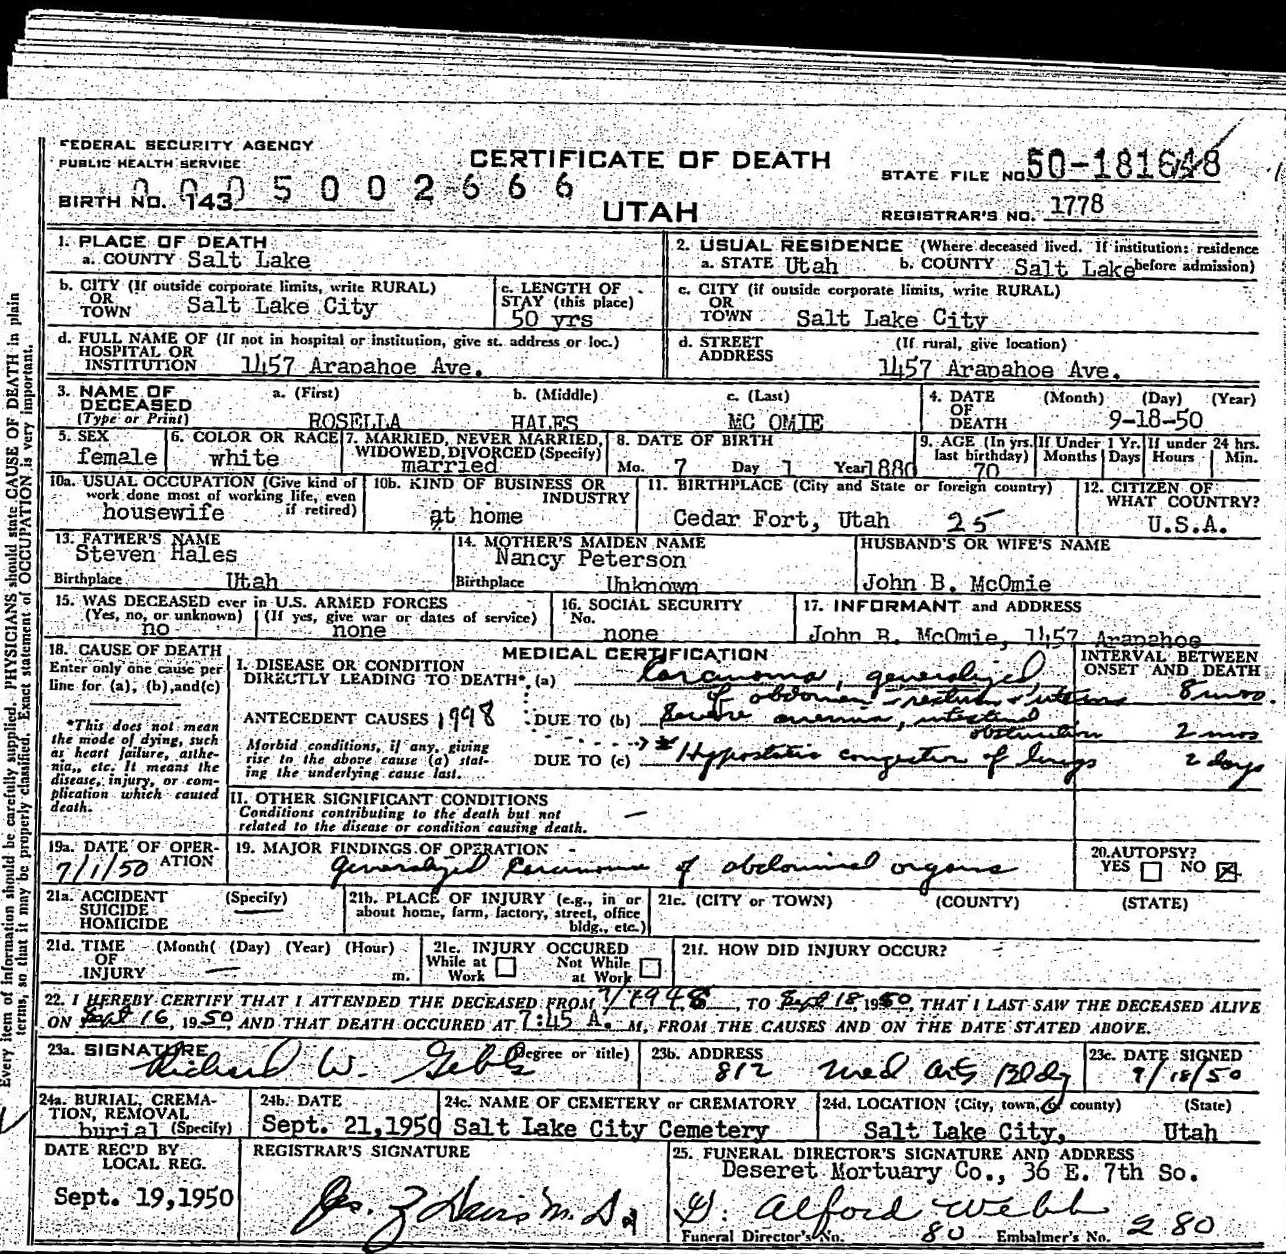 FEDERAL SECURITY AGENCY
PUBLIC HEALTH SERVICE
CERTIFICATE OF DEATH
STATE FILE NO. 50-181648
0005002666
BIRTH NO. 143
UTAH
REGISTRAR'S NO. 1778
1. PLACE OF DEATH
a. COUNTY Salt Lake
2. USUAL RESIDENCE (Where deceased lived. If institution: residence before admission)
a. STATE Utah b. COUNTY Salt Lake
b. CITY (If outside corporate limits, write RURAL)
OR
TOWN Salt Lake City
c. LENGTH OF
STAY (this place)
50 yrs
c. CITY (if outside corporate limits, write RURAL)
OR
TOWN Salt Lake City
d. FULL NAME OF (If not in hospital or institution, give st. address or loc.)
HOSPITAL OR
INSTITUTION 1457 Arapahoe Ave.
d. STREET (If rural, give location)
ADDRESS 1457 Arapahoe Ave.
3. NAME OF a. (First) b. (Middle) c. (Last)
DECEASED
(Type or Print) ROSELLA HALES MC OMIE
4. DATE (Month) (Day) (Year)
OF
DEATH 9-18-50
5. SEX
female
6. COLOR OR RACE
white
7. MARRIED, NEVER MARRIED,
WIDOWED, DIVORCED (Specify)
married
8. DATE OF BIRTH
Mo. 7 Day 1 Year 1880
9. AGE (In yrs. last birthday) 70
If Under 1 Yr. Months Days
If under 24 hrs. Hours Min.
10a. USUAL OCCUPATION (Give kind of
work done most of working life, even
if retired)
housewife
10b. KIND OF BUSINESS OR
INDUSTRY
at home
11. BIRTHPLACE (City and State or foreign country)
Cedar Fort, Utah 25
12. CITIZEN OF
WHAT COUNTRY?
U.S.A.
13. FATHER'S NAME
Steven Hales
Birthplace Utah
14. MOTHER'S MAIDEN NAME
Nancy Peterson
Birthplace Unknown
HUSBAND'S OR WIFE'S NAME
John B. McOmie
15. WAS DECEASED ever in U.S. ARMED FORCES
(Yes, no, or unknown) (If yes, give war or dates of service)
no none
16. SOCIAL SECURITY
No.
none
17. INFORMANT and ADDRESS
John B. McOmie, 1457 Arapahoe
18. CAUSE OF DEATH
Enter only one cause per
line for (a), (b), and (c)
*This does not mean
the mode of dying, such
as heart failure, asthe-
nia, etc. It means the
disease, injury, or com-
plication which caused
death.
MEDICAL CERTIFICATION
INTERVAL BETWEEN
ONSET AND DEATH
I. DISEASE OR CONDITION
DIRECTLY LEADING TO DEATH* (a) Carcinoma, generalized
of abdomen - rectum & uterus 8 mos.
ANTECEDENT CAUSES 1998 DUE TO (b) Severe anemia, intestinal
obstruction 2 mos
Morbid conditions, if any, giving
rise to the above cause (a) stat-
ing the underlying cause last.
DUE TO (c) * Hypostatic congestion of lungs 2 days
II. OTHER SIGNIFICANT CONDITIONS
Conditions contributing to the death but not
related to the disease or condition causing death. —
19a. DATE OF OPER-
ATION
7/1/50
19. MAJOR FINDINGS OF OPERATION
Generalized Carcinoma of abdominal organs
20. AUTOPSY?
YES NO
21a. ACCIDENT (Specify)
SUICIDE
HOMICIDE
21b. PLACE OF INJURY (e.g., in or
about home, farm, factory, street, office
bldg., etc.)
21c. (CITY or TOWN) (COUNTY) (STATE)
21d. TIME (Month) (Day) (Year) (Hour)
OF
INJURY — m.
21e. INJURY OCCURED
While at Work Not While at Work
21f. HOW DID INJURY OCCUR?
22. I HEREBY CERTIFY THAT I ATTENDED THE DECEASED FROM 1948, TO Sept 18, 1950, THAT I LAST SAW THE DECEASED ALIVE
ON Sept 16, 1950, AND THAT DEATH OCCURED AT 7:45 A. M, FROM THE CAUSES AND ON THE DATE STATED ABOVE.
23a. SIGNATURE (Degree or title)
Richard W.
23b. ADDRESS
812 Med Arts Bldg
23c. DATE SIGNED
9/18/50
24a. BURIAL, CREMA-
TION, REMOVAL
burial (Specify)
24b. DATE
Sept. 21, 1950
24c. NAME OF CEMETERY or CREMATORY
Salt Lake City Cemetery
24d. LOCATION (City, town, or county) (State)
Salt Lake City, Utah
DATE REC'D BY
LOCAL REG.
Sept. 19, 1950
REGISTRAR'S SIGNATURE
25. FUNERAL DIRECTOR'S SIGNATURE AND ADDRESS
Deseret Mortuary Co., 36 E. 7th So.
Alford Webb
Funeral Director's No. 80 Embalmer's No. 280
Every item of information should be carefully supplied. PHYSICIANS should state CAUSE OF DEATH in plain
terms, so that it may be properly classified. Exact statement of OCCUPATION is very important.